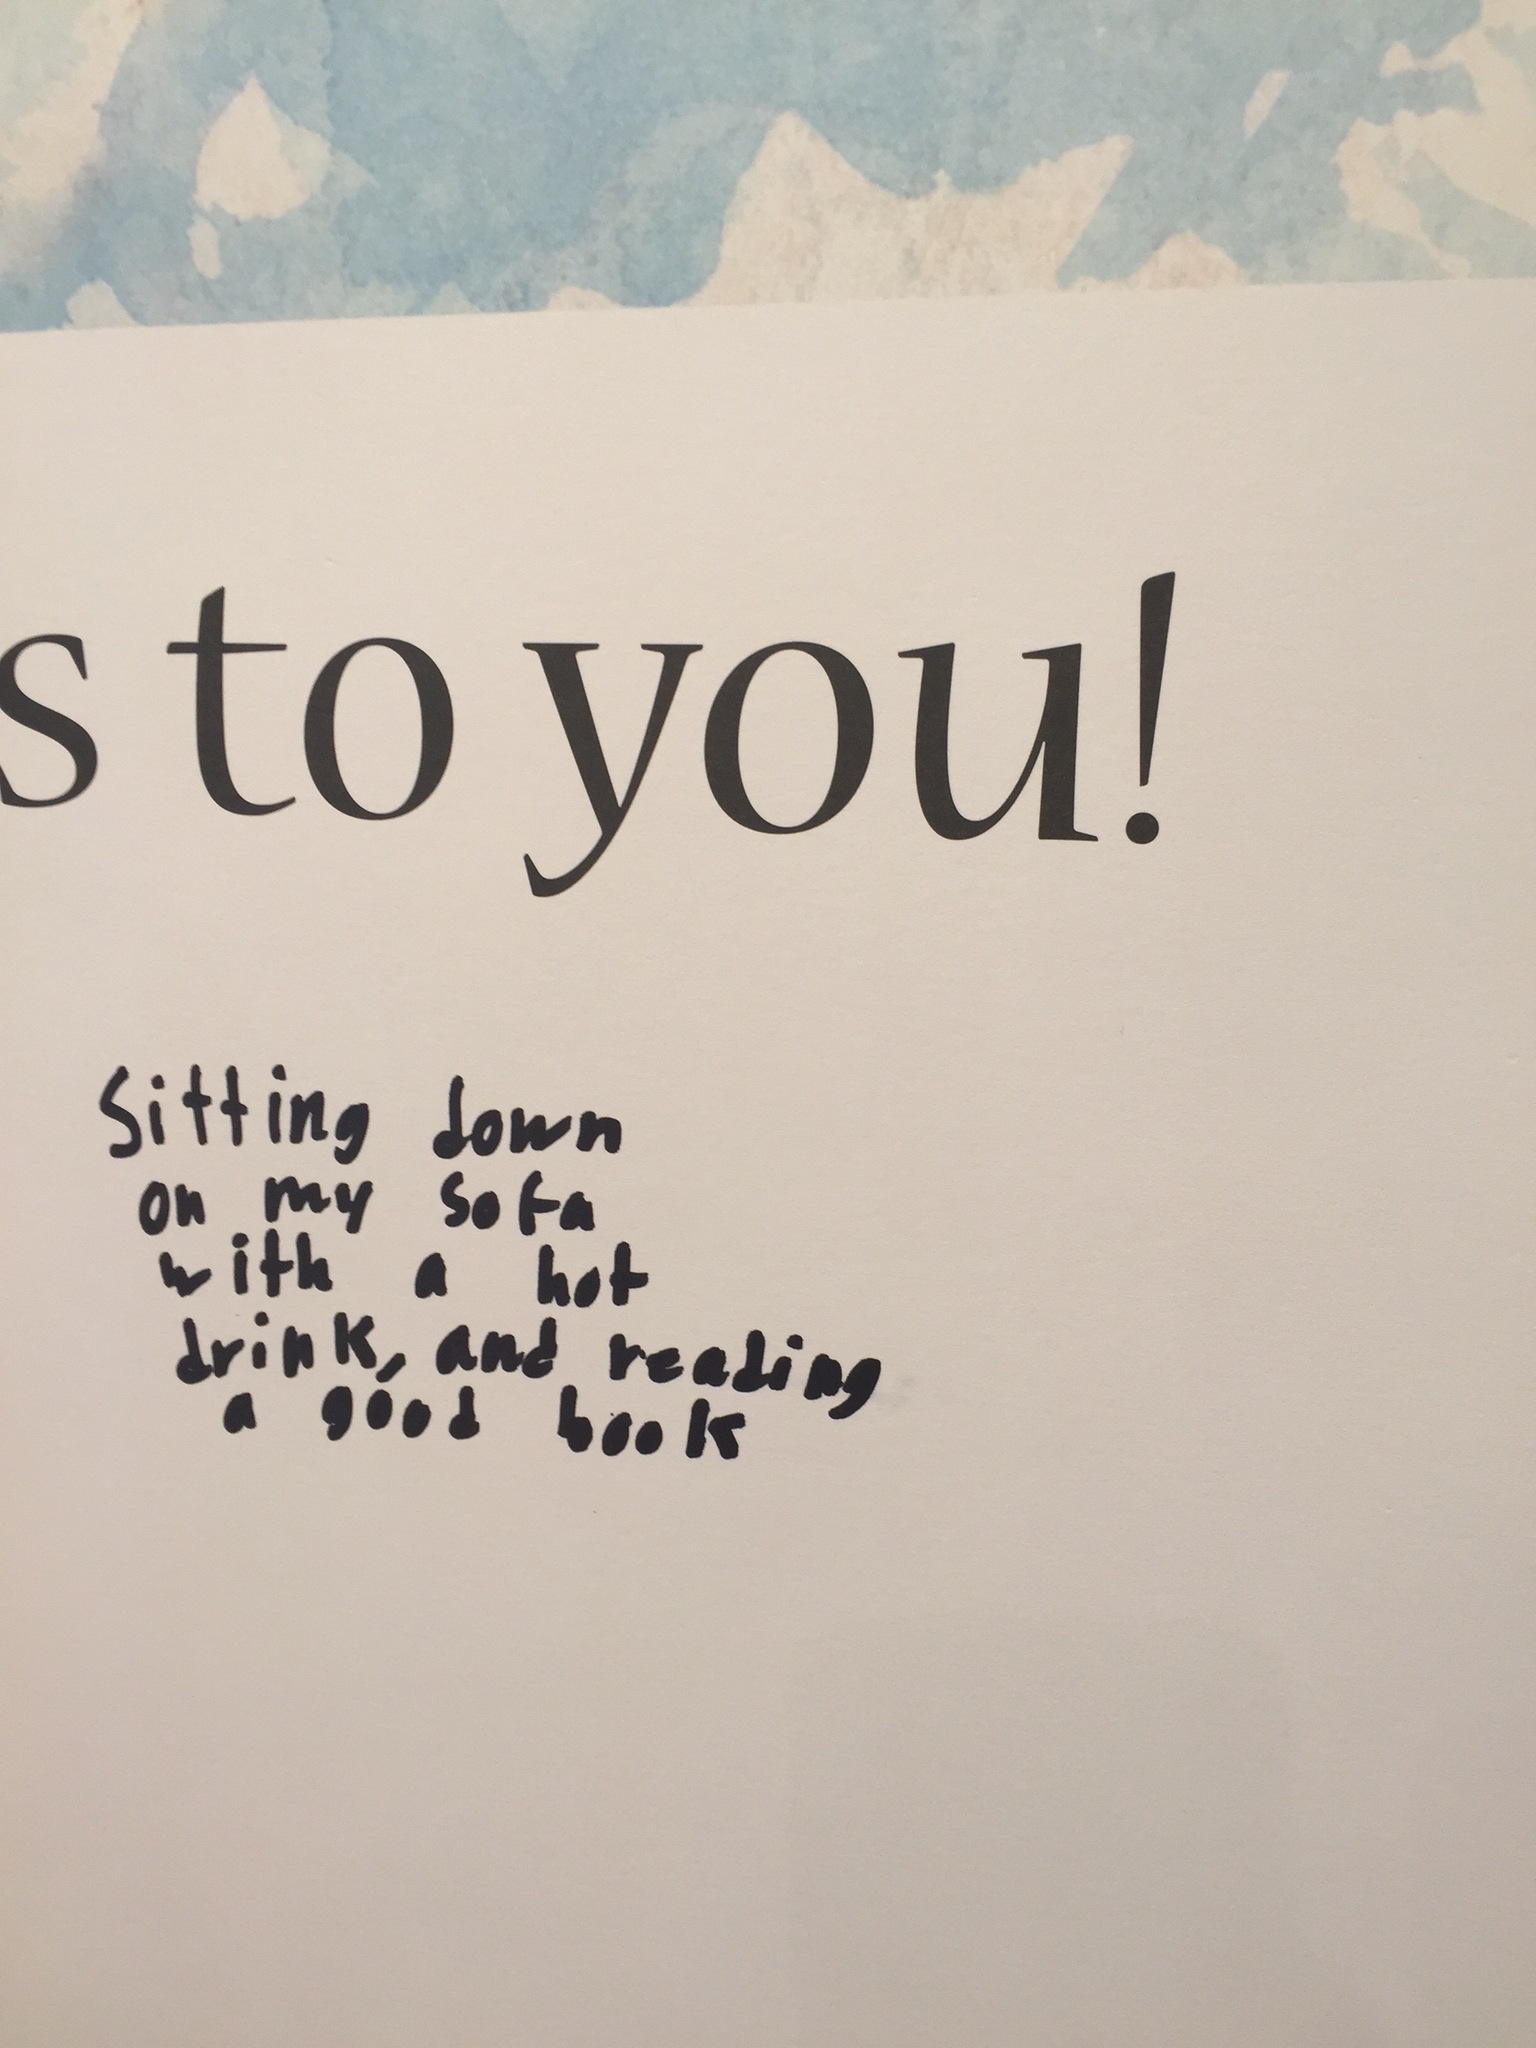 s to you!
Sitting down
on my sofa
with a hot
drink, and reading
a good book